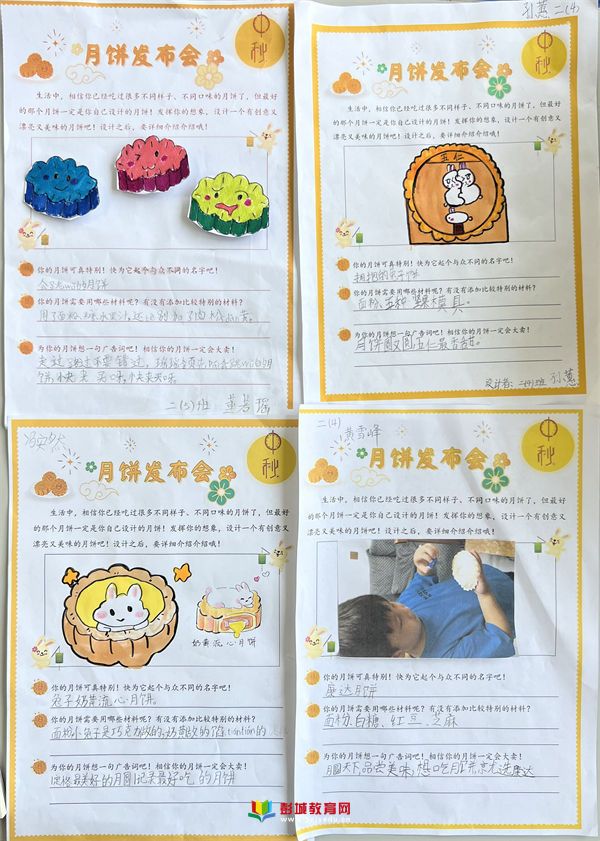 中秋
月饼发布会
生活中，相信你已经吃过很多不同样子、不同口味的月饼了，但最好
的那个月饼一定是你自己设计的月饼！发挥你的想象，设计一个有创意又
漂亮又美味的月饼吧！设计之后，要详细介绍介绍哦！
你的月饼可真特别！快为它起个与众不同的名字吧！
你的月饼需要用哪些材料呢？有没有添加比较特别的材料？
为你的月饼想一句广告词吧！相信你的月饼一定会大卖！
走过路过不要错过，
二(5)班 董若瑶
孙蕙 二(4)
中秋
月饼发布会
生活中，相信你已经吃过很多不同样子、不同口味的月饼了，但最好
的那个月饼一定是你自己设计的月饼！发挥你的想象，设计一个有创意又
漂亮又美味的月饼吧！设计之后，要详细介绍介绍哦！
五仁
你的月饼可真特别！快为它起个与众不同的名字吧！
拥抱的兔子饼
你的月饼需要用哪些材料呢？有没有添加比较特别的材料？
面粉、五种坚果模具。
为你的月饼想一句广告词吧！相信你的月饼一定会大卖！
月饼圆又圆五仁最香甜。
设计者：二(4)班 孙蕙
中秋
月饼发布会
生活中，相信你已经吃过很多不同样子、不同口味的月饼了，但最好
的那个月饼一定是你自己设计的月饼！发挥你的想象，设计一个有创意又
漂亮又美味的月饼吧！设计之后，要详细介绍介绍哦！
奶黄流心月饼
你的月饼可真特别！快为它起个与众不同的名字吧！
兔子奶黄流心月饼。
你的月饼需要用哪些材料呢？有没有添加比较特别的材料？
面粉小兔子是巧克力做的，奶黄
为你的月饼想一句广告词吧！相信你的月饼一定会大卖！
最好吃的月饼
二(4)
黄雪峰
中秋
月饼发布会
生活中，相信你已经吃过很多不同样子、不同口味的月饼了，但最好
的那个月饼一定是你自己设计的月饼！发挥你的想象，设计一个有创意又
漂亮又美味的月饼吧！设计之后，要详细介绍介绍哦！
你的月饼可真特别！快为它起个与众不同的名字吧！
康达月饼
你的月饼需要用哪些材料呢？有没有添加比较特别的材料？
面粉、白糖、红豆、芝麻
为你的月饼想一句广告词吧！相信你的月饼一定会大卖！
月圆天下，品尝美味，想吃月饼，就选康达
彭城教育网